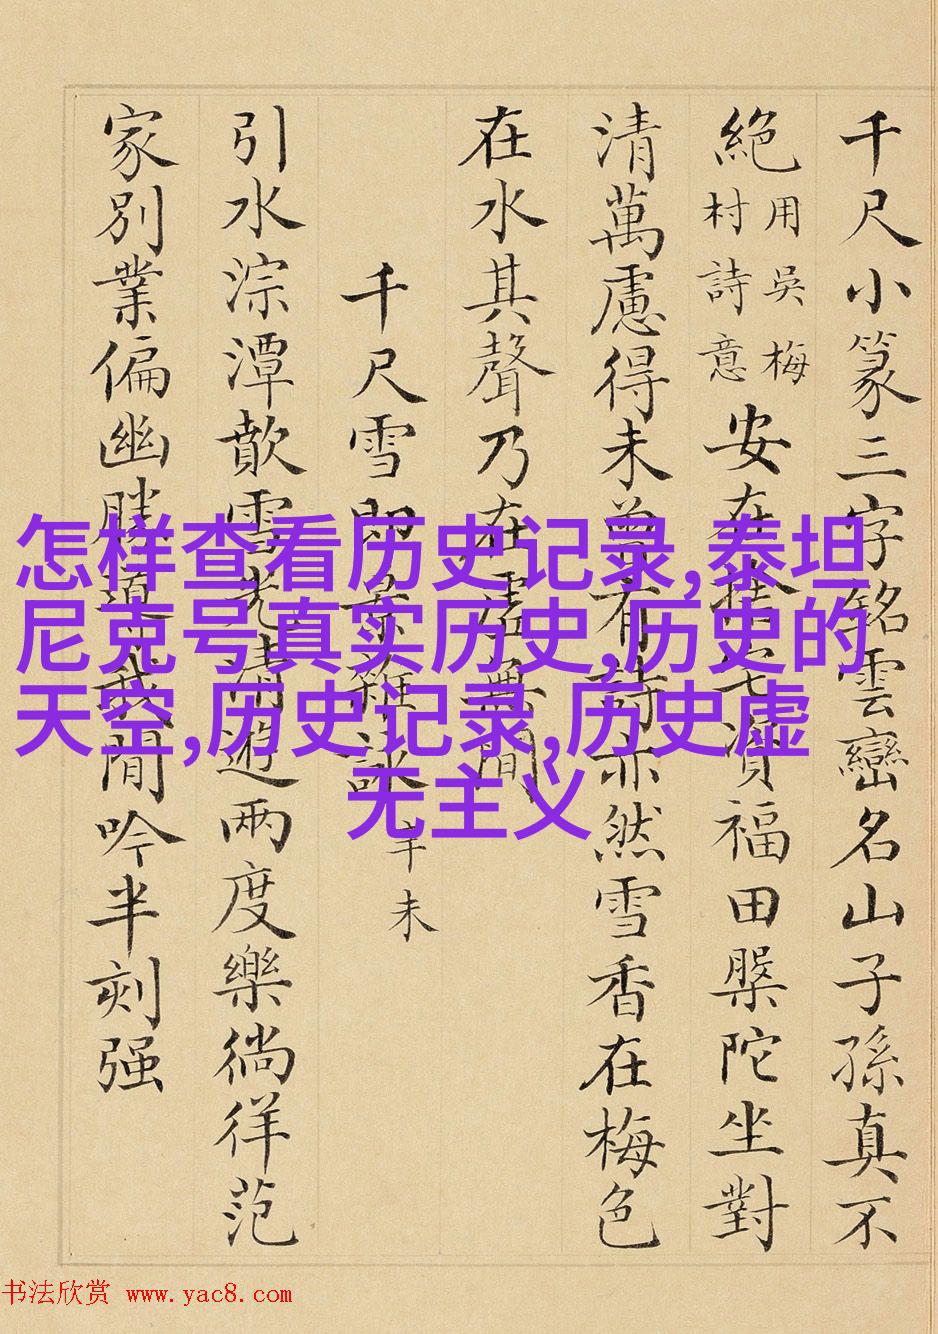 千尺小篆三字銘雲巒名山子孫真不
絕用吳梅村詩意安在捨宅資福田槃陀坐對
清萬慮得未曾有詩亦然雪香在梅色
在水其聲乃在虛無間
千尺雪即景雜詠辛未
引水淙潭歕雪光清遊兩度樂徜徉范
家別業偏幽勝道我閒吟半刻强
怎样查看历史记录,泰坦
尼克号真实历史,历史的
天空,历史记录,历史虚
无主义
书法欣赏 www.yac8.com